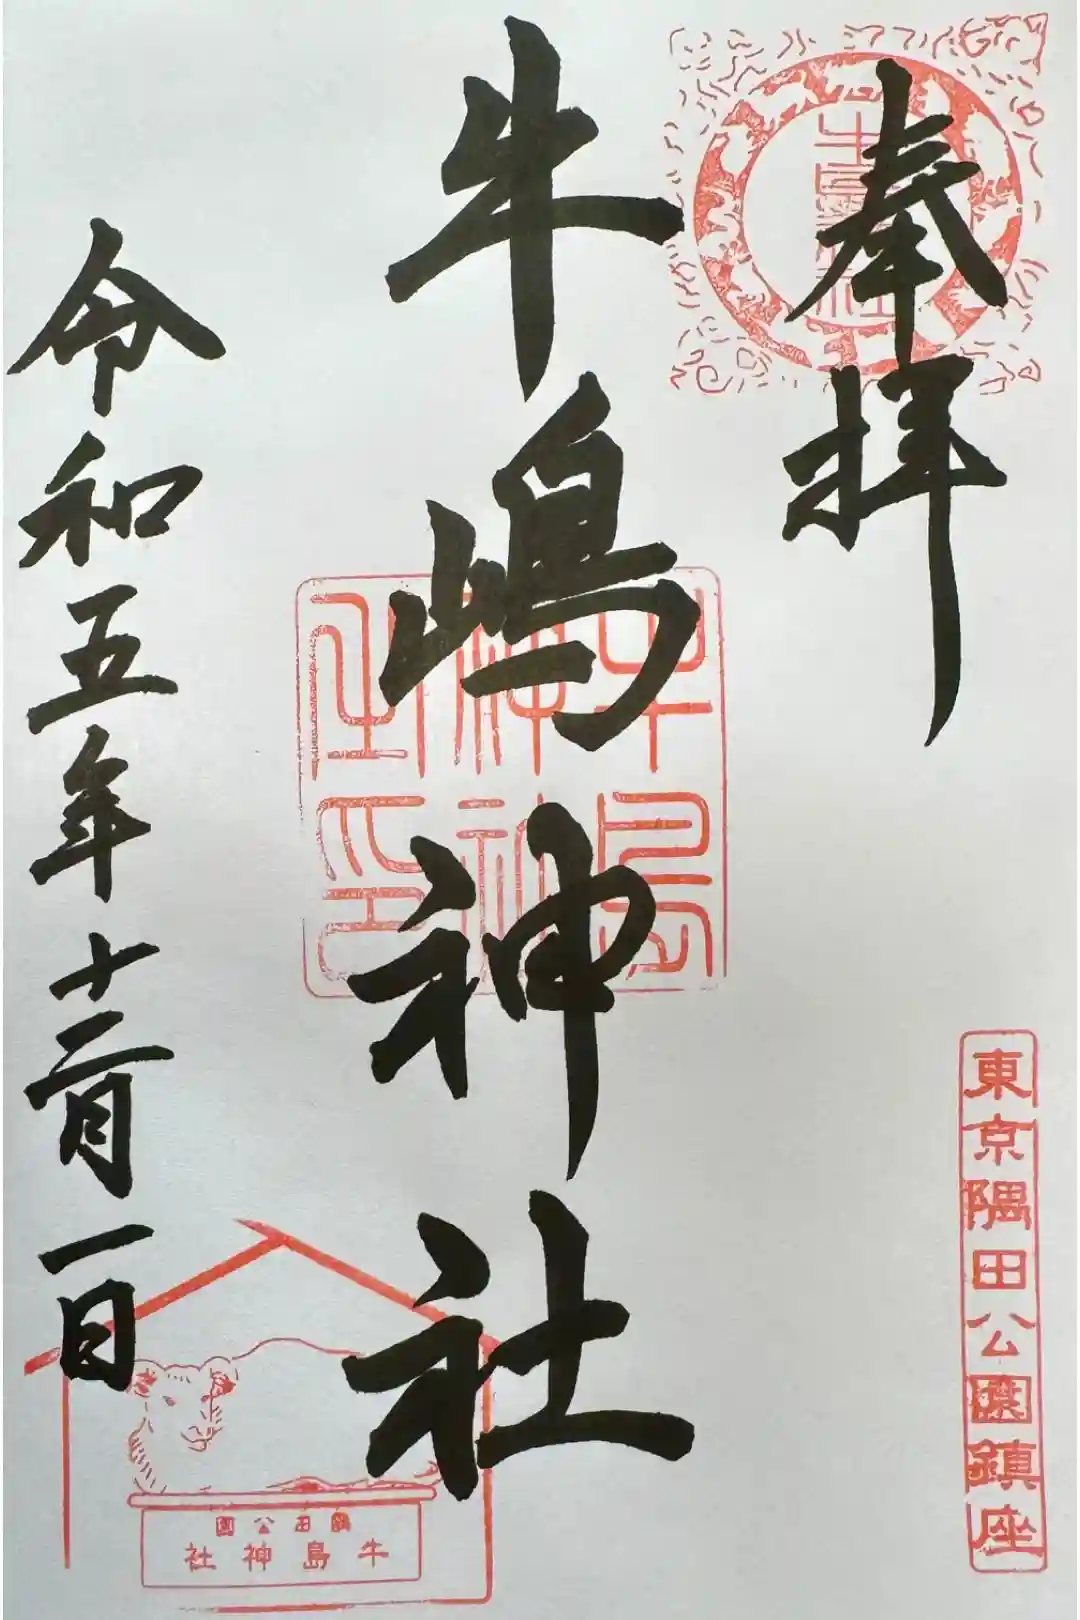 奉拝
東京隅田公園鎮座
牛嶋神社
牛島神社神社之印
令和五年十二月一日
隅田公園
牛島神社